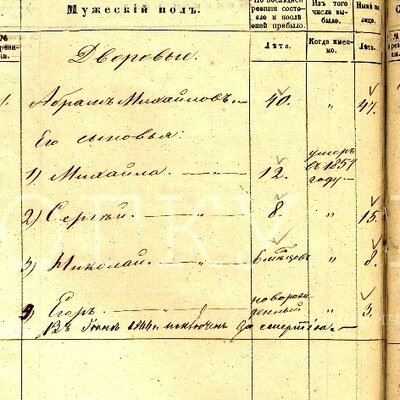 Мужескій полъ.
По послѣдней ревизіи состояло и послѣ оней прибыло.
Изъ того числа выбыло.
Нынѣ на лицо.
Лѣта.
Когда именно.
Лѣтъ.
Дворовые.
1. Абрамъ Михайловъ. — 40. " 47.
Его сыновья:
1) Михайла. — " — 12. умеръ въ 1857 году —
2) Сергѣй. — " — 8. " 15.
3) Николай. — " — 6 мѣсяцевъ " 8.
4) Егоръ — " — новорожденный " 3.
исключенъ за смертію. —